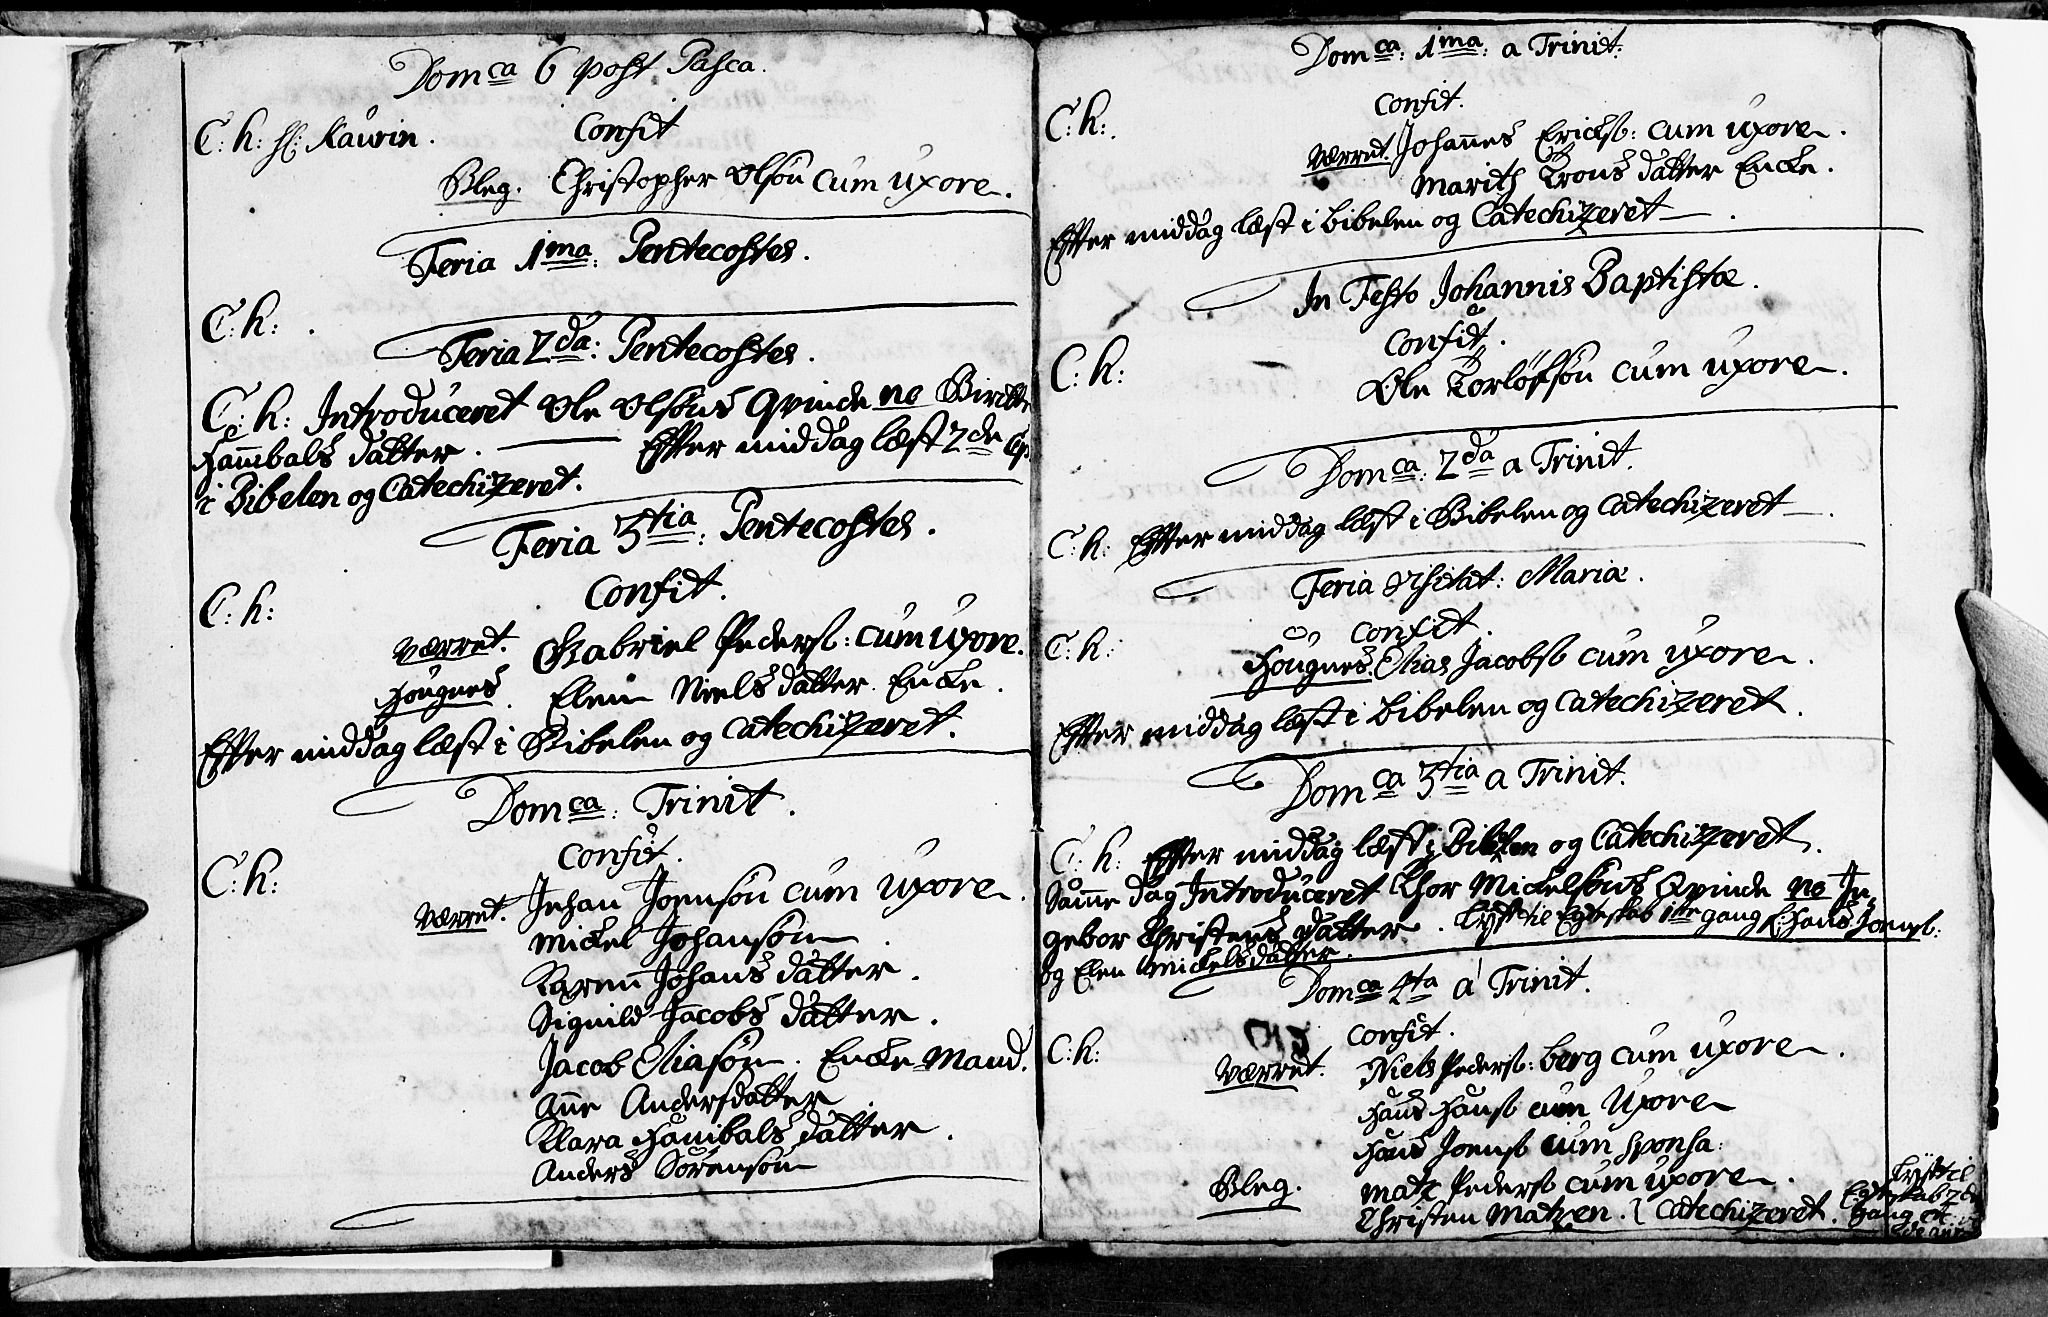 Domca 6 post Pasca.
C: h: hl: Kaurin. Confit
Bleg. Christopher Olsøn cum uxore.
Feria 1ma: Pentecostes.
C: h:
Feria 2da: Pentecostes.
C: h: Introduceret Ole Olsøns Qvinde no Biritte
Hannibals datter. Efter middag læst 2de Cap
i Bibelen og Catechizeret.
Feria 3tia: Pentecostes.
Confit.
C: h:
Værret. Gabriel Peders: cum uxore.
Hougnes. Elen Niels datter. Encke.
Efter middag læst i Bibelen og Catechizeret.
Domca: Trinit.
Confit.
C: h:
Værret. Johan Joensøn cum uxore.
Mickel Johansøn.
Karen Johans datter.
Signild Jacobs datter.
Jacob Eliasøn. Encke Mand.
Anne Andersdatter.
Klara Hanibals datter.
Anders Sørensøn
Domca: 1ma: a Trinit:
C: h: Confit.
Værret. Johannes Ericks: cum uxore.
Marith Trons datter Encke.
Efter middag læst i bibelen og Catechizeret.
In Festo Johannis Baptistæ.
Confit.
C: h:
Ole Torløfsøn cum uxore.
Domca: 2da a Trinit.
C: h: Efter middag læst i Bibelen og Catechizeret.
Feria Visitat: Mariæ.
C: h: Confit.
Hougnes. Elias Jacobs cum uxore.
Efter middag læst i bibelen og Catechizeret.
Domca 3tia a Trinit.
C: h: Efter middag læst i Bibelen og Catechizeret.
Samme dag Introduceret Thor Mickelsøns Qvinde no In„
gebor Christens datter. Lyst til Egteskab 1te gang f: Hans Joens:
og Elen Mickelsdatter.
Domca 4ta a Trinit.
C: h: Confit.
Værret. Niels Peders: berg cum uxore.
Hans Hans cum Uxore
Hans Joens cum sponsa:
Bleg. Matz Peders cum uxore.
Christen Matzen. Catechizeret.
Lyst til
Egteskab 2de
gang